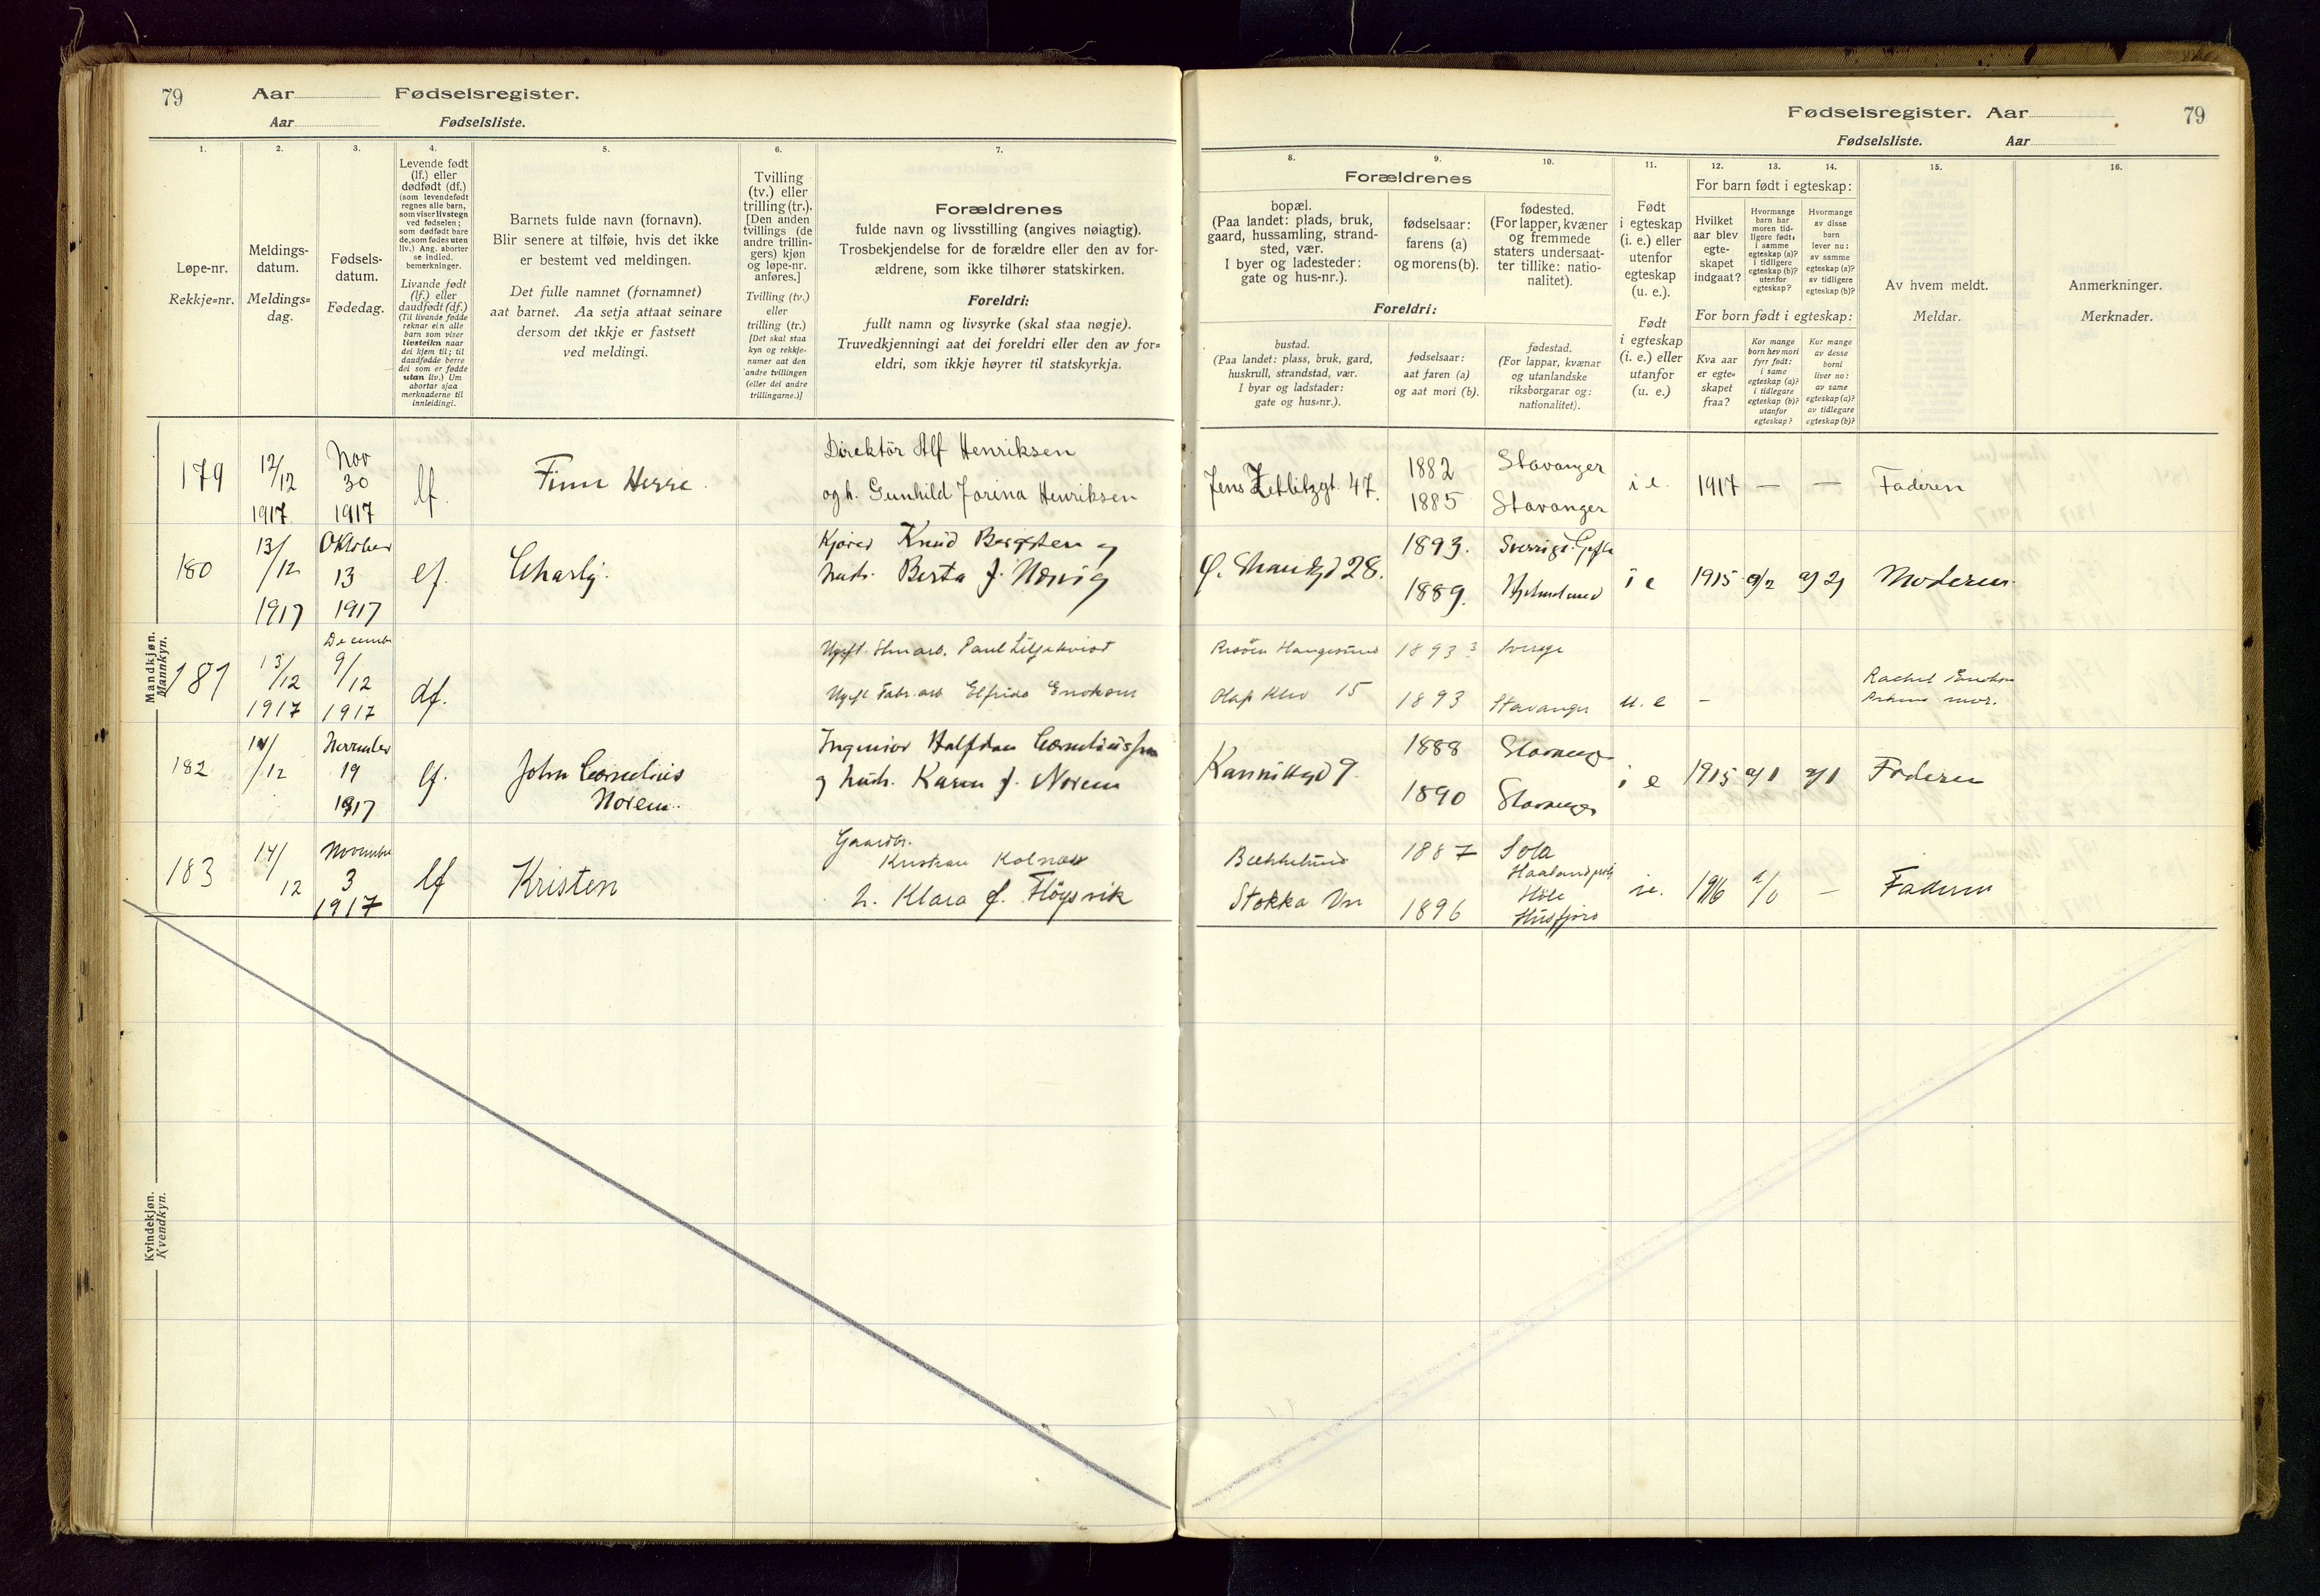 79 Aar Fødselsregister.
Aar Fødselsliste.
1. 2. 3. 4. 5. 6. 7.
Løpe-nr.
Rekkje=nr.
Meldings-
datum.
Meldings=
dag.
Fødsels-
datum.
Fødedag.
Levende født
(lf.) eller
dødfødt (df.)
(som levendefødt
regnes alle barn,
som viser livstegn
ved fødselen;
som dødfødt bare
de, som fødes uten
liv.) Ang. aborter
se indled.
bemerkninger.
Livande født
(lf.) eller
daudfødt (df.)
(Til livande fødde
reknar ein alle
barn som viser
livsteikn naar
dei kjem til; til
daudfødde berre
dei som er fødde
utan liv.) Um
abortar sjaa
merknaderne til
innleidingi.
Barnets fulde navn (fornavn).
Blir senere at tilføie, hvis det ikke
er bestemt ved meldingen.
Det fulle namnet (fornamnet)
aat barnet. Aa setja attaat seinare
dersom det ikkje er fastsett
ved meldingi.
Tvilling
(tv.) eller
trilling (tr.).
[Den anden
tvillings (de
andre trillin-
gers) kjøn
og løpe-nr.
anføres.]
Tvilling (tv.)
eller
trilling (tr.)
[Det skal staa
kyn og rekkje-
numer aat den
andre tvillingen
(eller dei andre
trillingarne.)]
Forældrenes
fulde navn og livsstilling (angives nøiagtig).
Trosbekjendelse for de forældre eller den av for-
ældrene, som ikke tilhører statskirken.
Foreldri:
fullt namn og livsyrke (skal staa nøgje).
Truvedkjenningi aat dei foreldri eller den av for=
eldri, som ikkje høyrer til statskyrkja.
Mandkjøn.
Mannkyn.
179 12/12 1917 Nov 30 1917 lf. Finn Herre.
Direktör Alf Henriksen
og h. Gunhild Jorina Henriksen
180 13/12 1917 Oktober 13 1917 lf. Charly.
Knud Bergsten og
hust. Berta f. Nærvig
181 13/12 1917 Decembr 9/12 1917 df.
Paul Liljekvist
Ugift Fabr. arb Elfrida Enoksen
182 14/12 November 19 1917 lf. John Cornelius
Norem.
Ingeniör Halfdan Corneliussen
og hust. Karen f. Norem
183 14/12 November 3 1917 lf Kristen
Gaardbr.
Kristian Kolnes
h. Klara f. Flöysvik
Kvindekjøn.
Kvendkyn.
Fødselsregister. Aar 79
Fødselsliste. Aar
8. 9. 10. 11. 12. 13. 14. 15. 16.
Forældrenes
bopæl.
(Paa landet: plads, bruk,
gaard, hussamling, strand-
sted, vær.
I byer og ladesteder:
gate og hus-nr.).
fødselsaar:
farens (a)
og morens (b).
fødested.
(For lapper, kvæner
og fremmede
staters undersaat-
ter tillike: natio-
nalitet).
Foreldri:
bustad.
(Paa landet: plass, bruk, gard,
huskrull, strandstad, vær.
I byar og ladstader:
gate og hus=nr.).
fødselsaar:
aat faren (a)
og aat mori (b).
fødestad.
(For lappar, kvænar
og utanlandske
riksborgarar og:
nationalitet).
Født
i egteskap
(i. e.) eller
utenfor
egteskap
(u. e.).
Født
i egteskap
(i. e.) eller
utanfor
(u. e.)
For barn født i egteskap:
Hvilket
aar blev
egte-
skapet
indgaat?
Hvormange
barn har
moren tid-
ligere født:
i samme
egteskap (a)?
i tidligere
egteskap (b)?
utenfor
egteskap?
Hvormange
av disse
barn
lever nu:
av samme
egteskap (a)?
av tidligere
egteskap (b)?
For born født i egteskap:
Kva aar
er egte=
skapet
fraa?
Kor mange
born hev mori
fyrr født:
i same
egteskap (a)?
i tidlegare
egteskap (b)?
utanfor
egteskap?
Kor mange
av desse
borni
liver no:
av same
egteskap (a)?
av tidlegare
egteskap (b)?
Av hvem meldt.
Meldar.
Anmerkninger.
Merknader.
Jens Zetlitzgt. 47. 1882 Stavanger
1885 Stavanger i e. 1917 — — Faderen
28. 1893. Sverrige. Gefle
1889. Hjelmeland i e 1915 a/2 a/2 Moderen.
Haugesund 1893 Sverige
Olaf Klev 15 1893 Stavanger u. e - Rachel Enoksen
mor.
Kannikgd 9 1888 Stavanger
1890 Stavanger i e 1915 a/1 a/1 Faderen
Bekkelund 1887 Sola
Haaland
Stokka Vn 1896 Höle
Husfjord ie. 1916 a/0 — Faderen